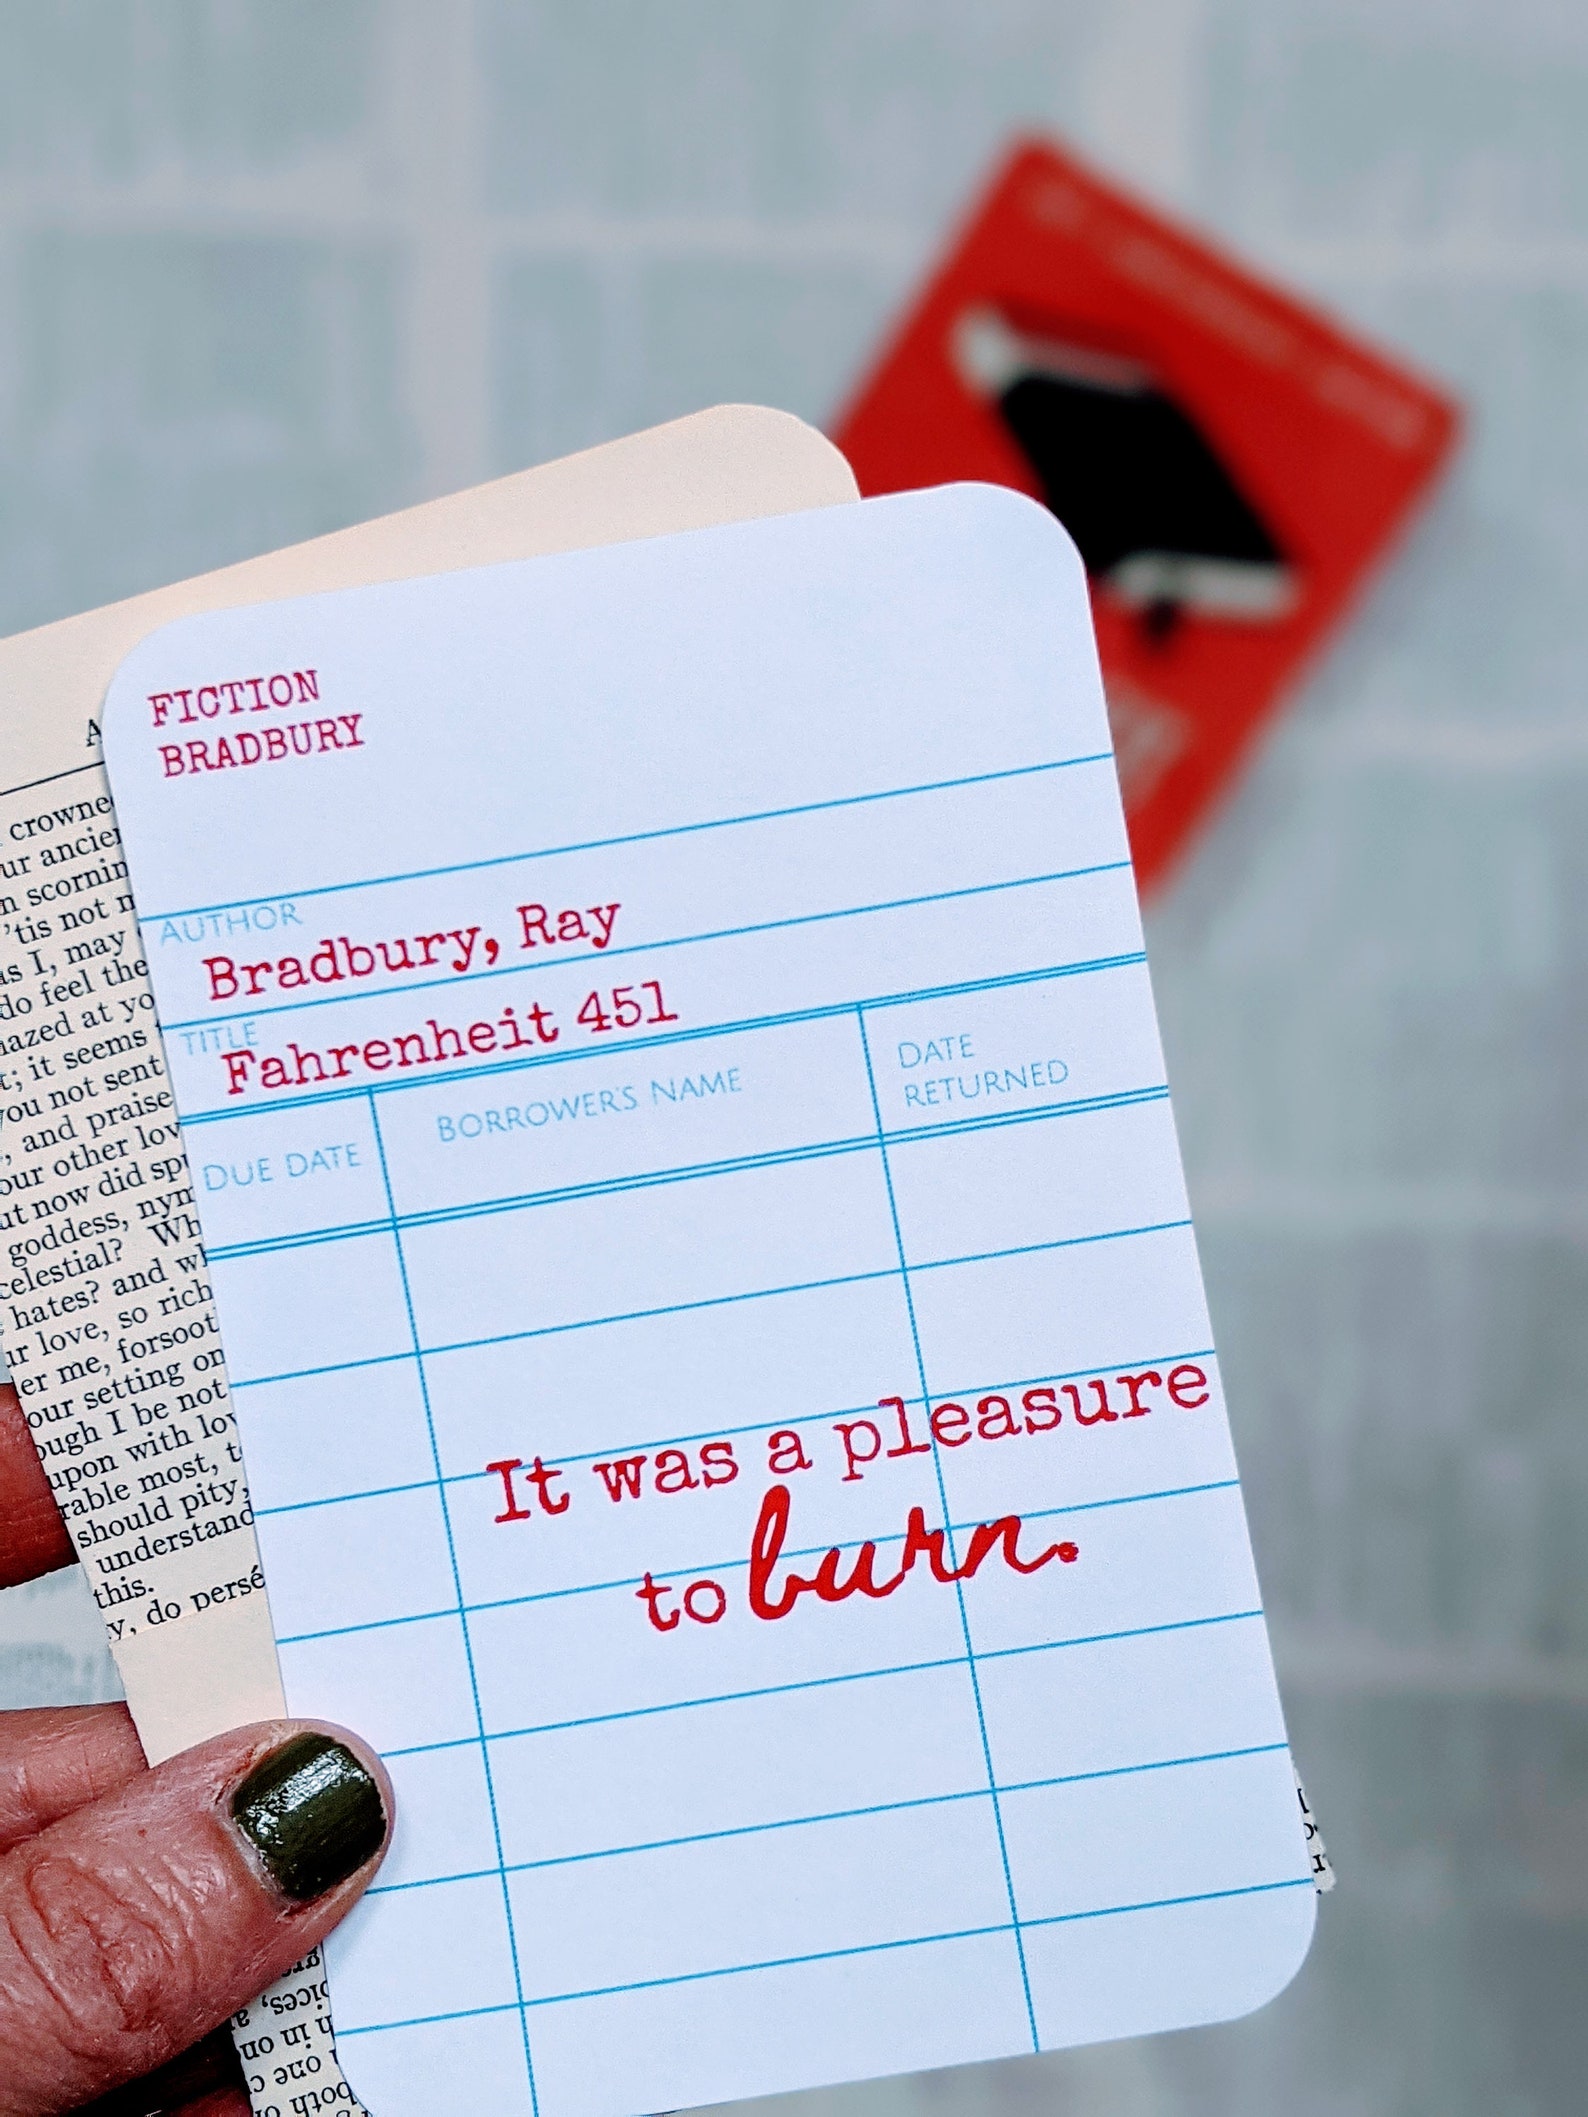 FICTION
BRADBURY
AUTHOR
Bradbury, Ray
TITLE
Fahrenheit 451
DUE DATE
BORROWER'S NAME
DATE
RETURNED
It was a pleasure
to burn.
crowne
ur ancier
n scornin
'tis not
as I, may
do feel the
azed at yo
; it seems
you not sent
, and praise
our other lov
ut now did sp
goddess, nym
celestial? Wh
hates? and wh
ur love, so rich
er me, forsoot
our setting on
ough I be not
upon with lov
rable most, t
should pity,
understand
this.
y, do persé